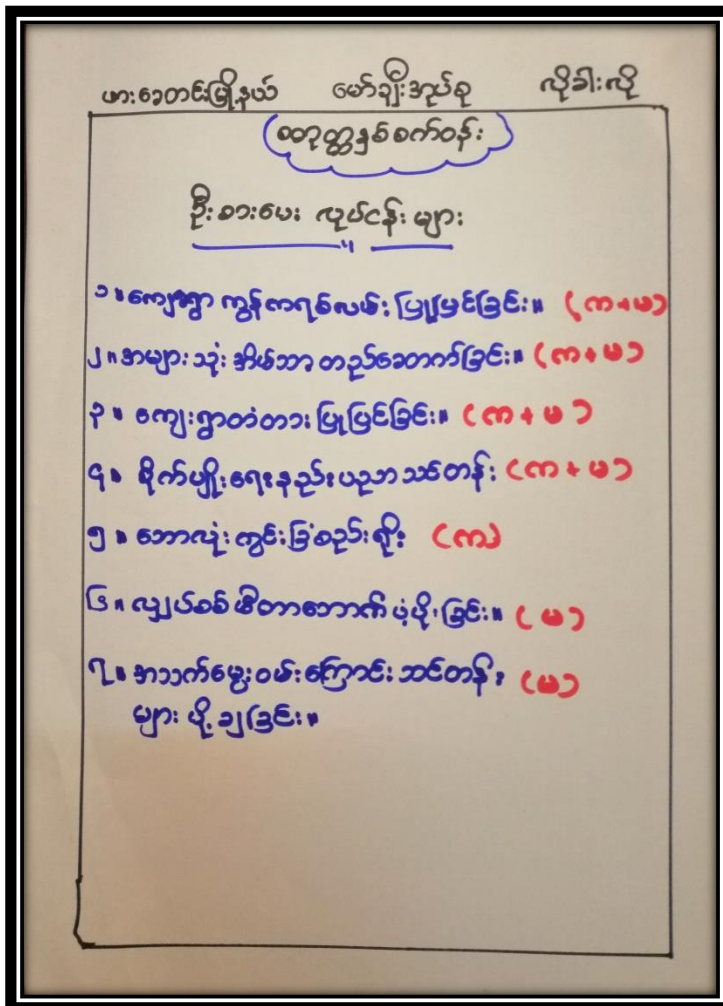 ဖားဆောင်းမြို့နယ် မော်ချီးအုပ်စု လိုခါးလို
စတုတ္ထနှစ်စက်ဝန်း
ဦးစားပေး လုပ်ငန်းများ
၁။ ကျေးရွာ ကွန်ကရစ်လမ်း ပြုပြင်ခြင်း။ (က+မ)
၂။ အများသုံး အိမ်သာ တည်ဆောက်ခြင်း။ (က+မ)
၃။ ကျေးရွာတံတား ပြုပြင်ခြင်း။ (က+မ)
၄။ စိုက်ပျိုးရေးနည်းပညာ သင်တန်း (က+မ)
၅။ ဘောလုံးကွင်းခြံစည်းရိုး (က)
၆။ လျှပ်စစ် မီတာဘောက် ပံ့ပိုးခြင်း။ (မ)
၇။ အသက်မွေးဝမ်းကြောင်း သင်တန်း (မ)
များ ပို့ချခြင်း။